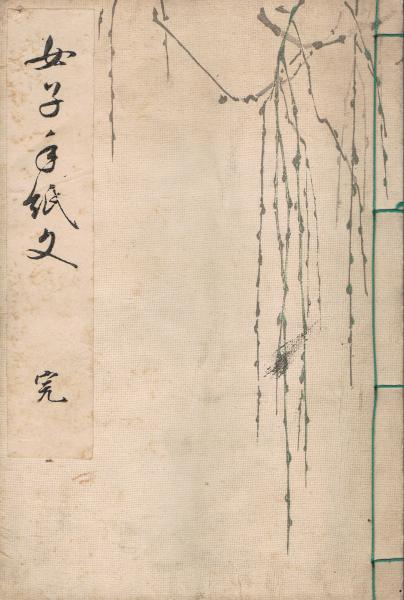 女子手紙文 完